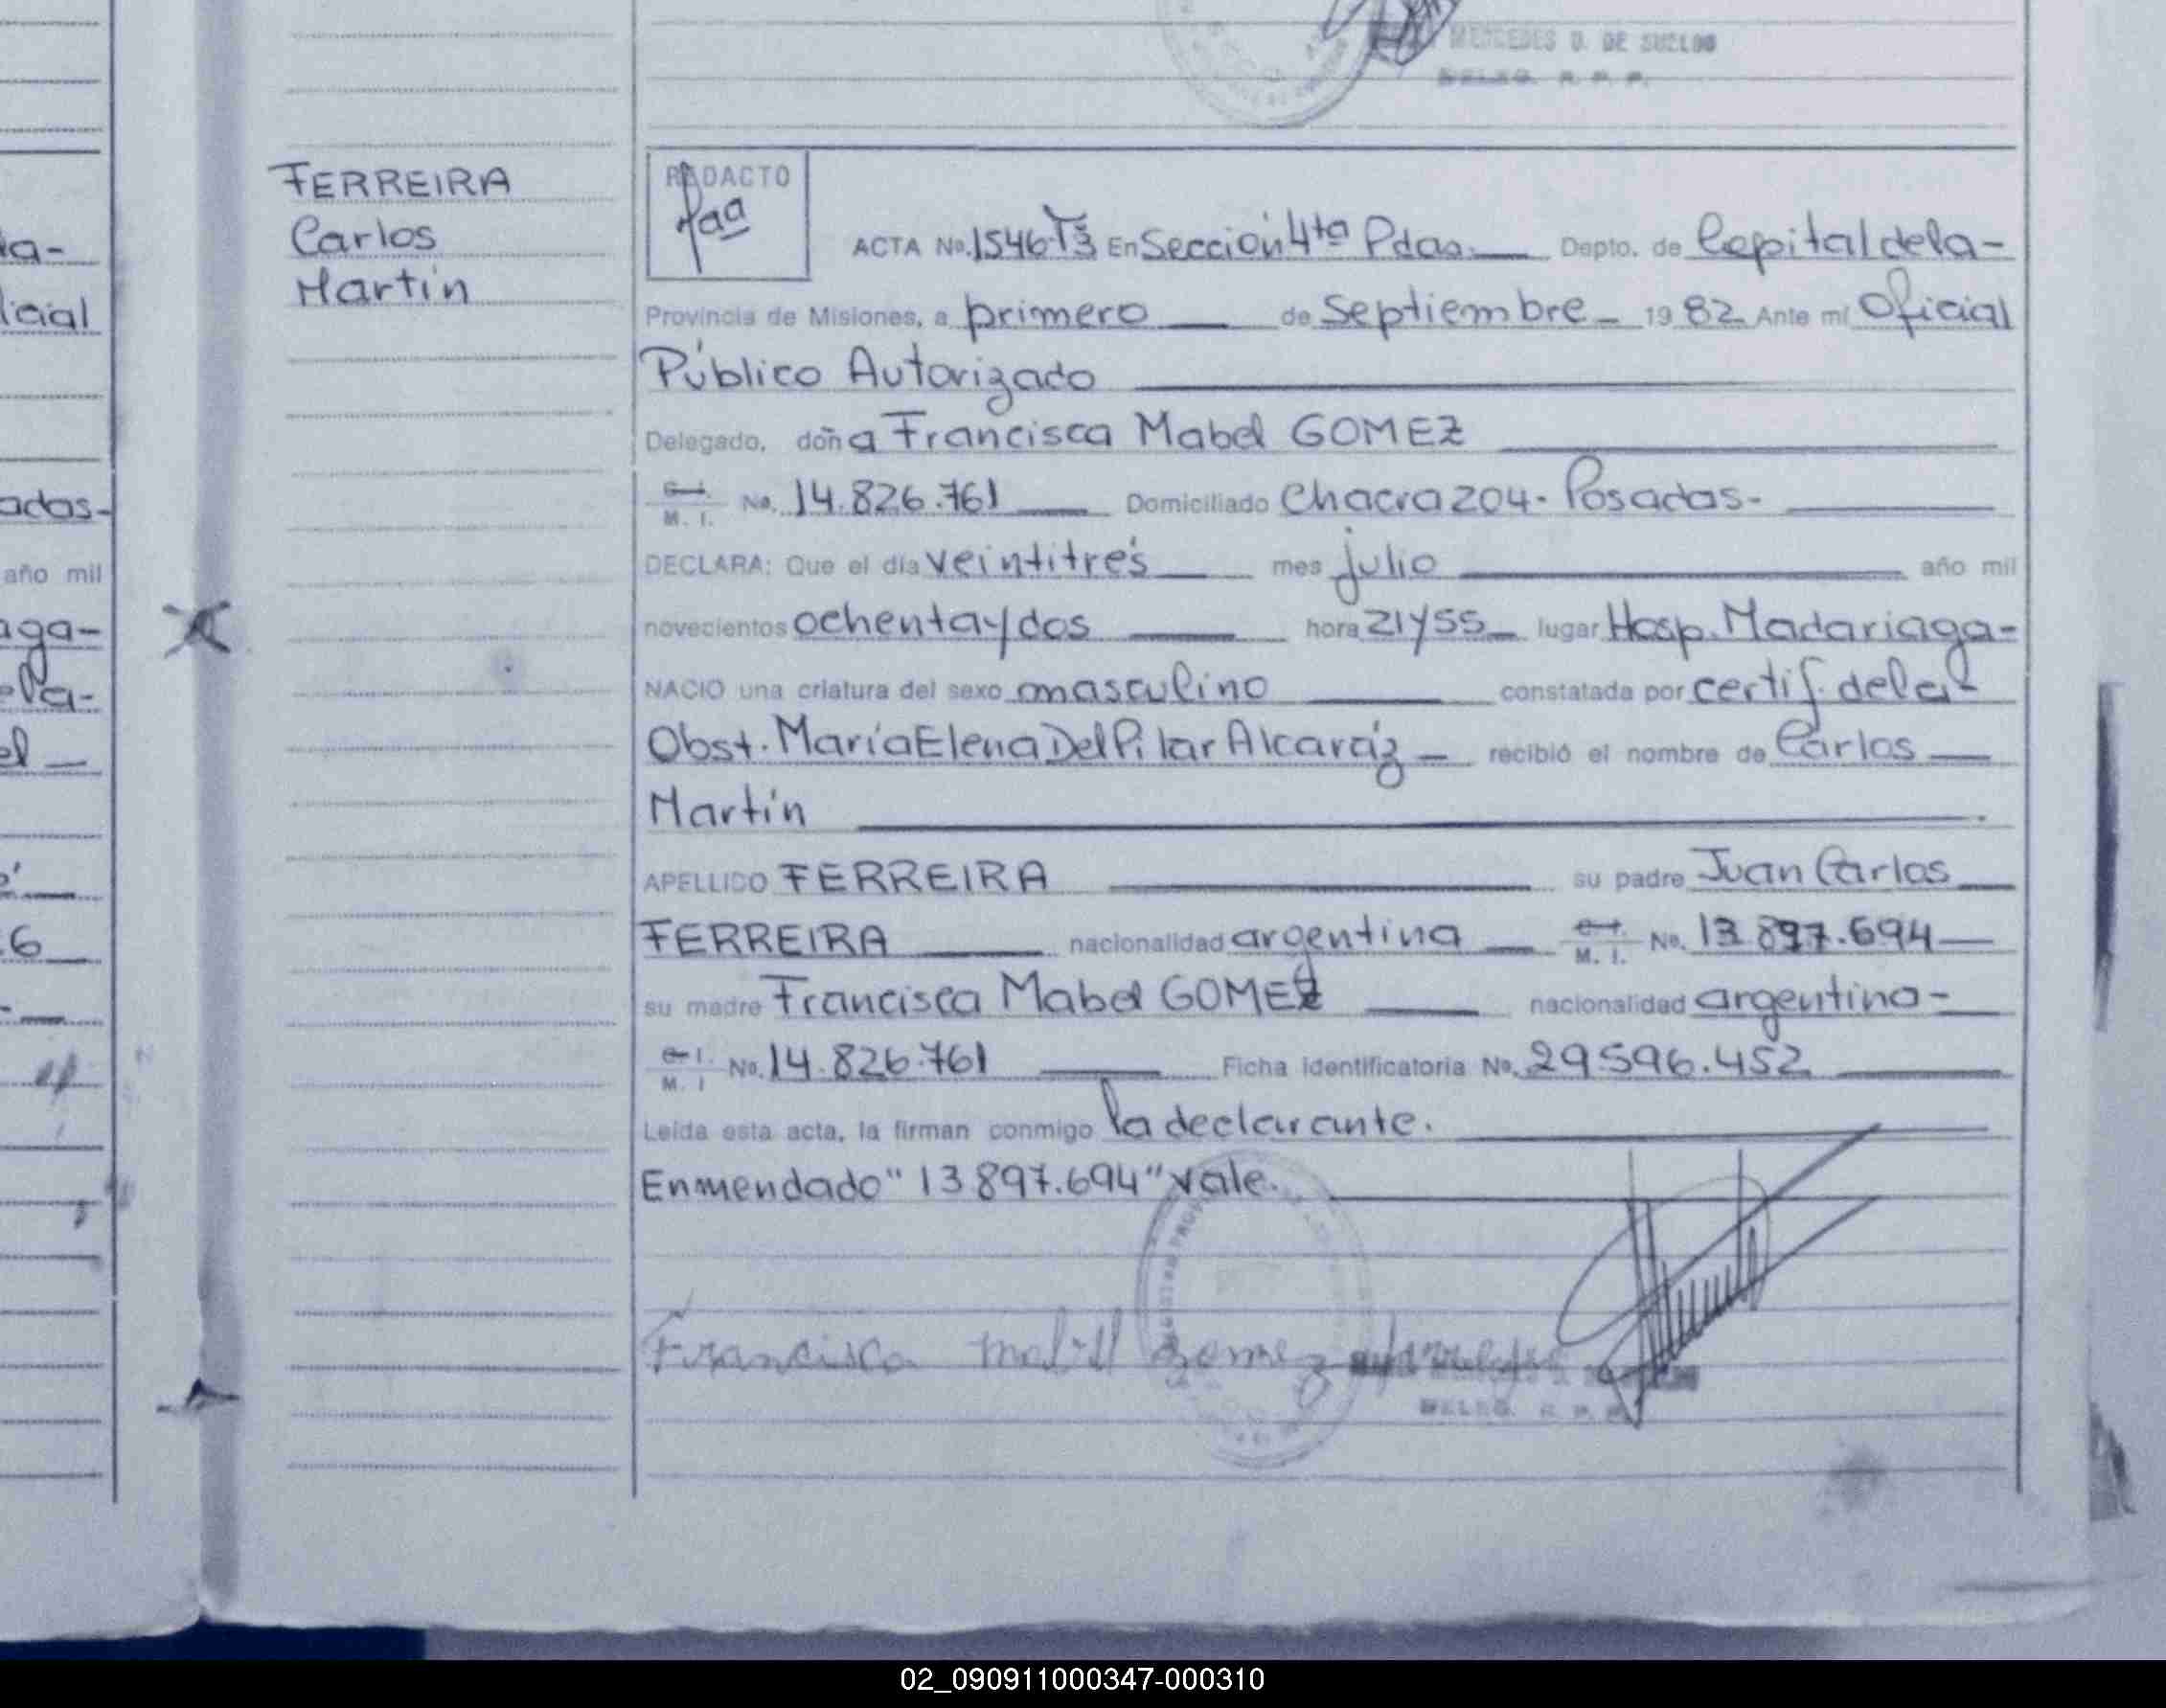 MERCEDES D. DE SUELDO
DELEG. R. P. P.
la-
icial
adas-
año mil
aga-
ela-
el
6
FERREIRA
Carlos
Martín
REDACTO
ACTA No. 1546 T3 En Sección 4ta Pdas. Depto. de Capital de la-
Provincia de Misiones, a primero de Septiembre 19 82 Ante mí Oficial
Público Autorizado
Delegado, doña Francisca Mabel GOMEZ
C. I. M. I. No. 14.826.761 Domiciliado Chacra 204- Posadas-
DECLARA: Que el día veintitrés mes julio año mil
novecientos ochenta y dos hora 21 y 55 lugar Hosp. Madariaga-
NACIO una criatura del sexo masculino constatada por certif. de la-
Obst. María Elena Del Pilar Alcaráz recibió el nombre de Carlos
Martín
APELLIDO FERREIRA su padre Juan Carlos
FERREIRA nacionalidad argentina C. I. M. I. No. 13.897.694
su madre Francisca Mabel GOMEZ nacionalidad argentina-
C. I. M. I No. 14.826.761 Ficha identificatoria No. 29.596.452
Leída esta acta, la firman conmigo la declarante.
Enmendado "13.897.694" vale.
Francisca mabel gomez
DELEG. R. P. P.
02_090911000347-000310